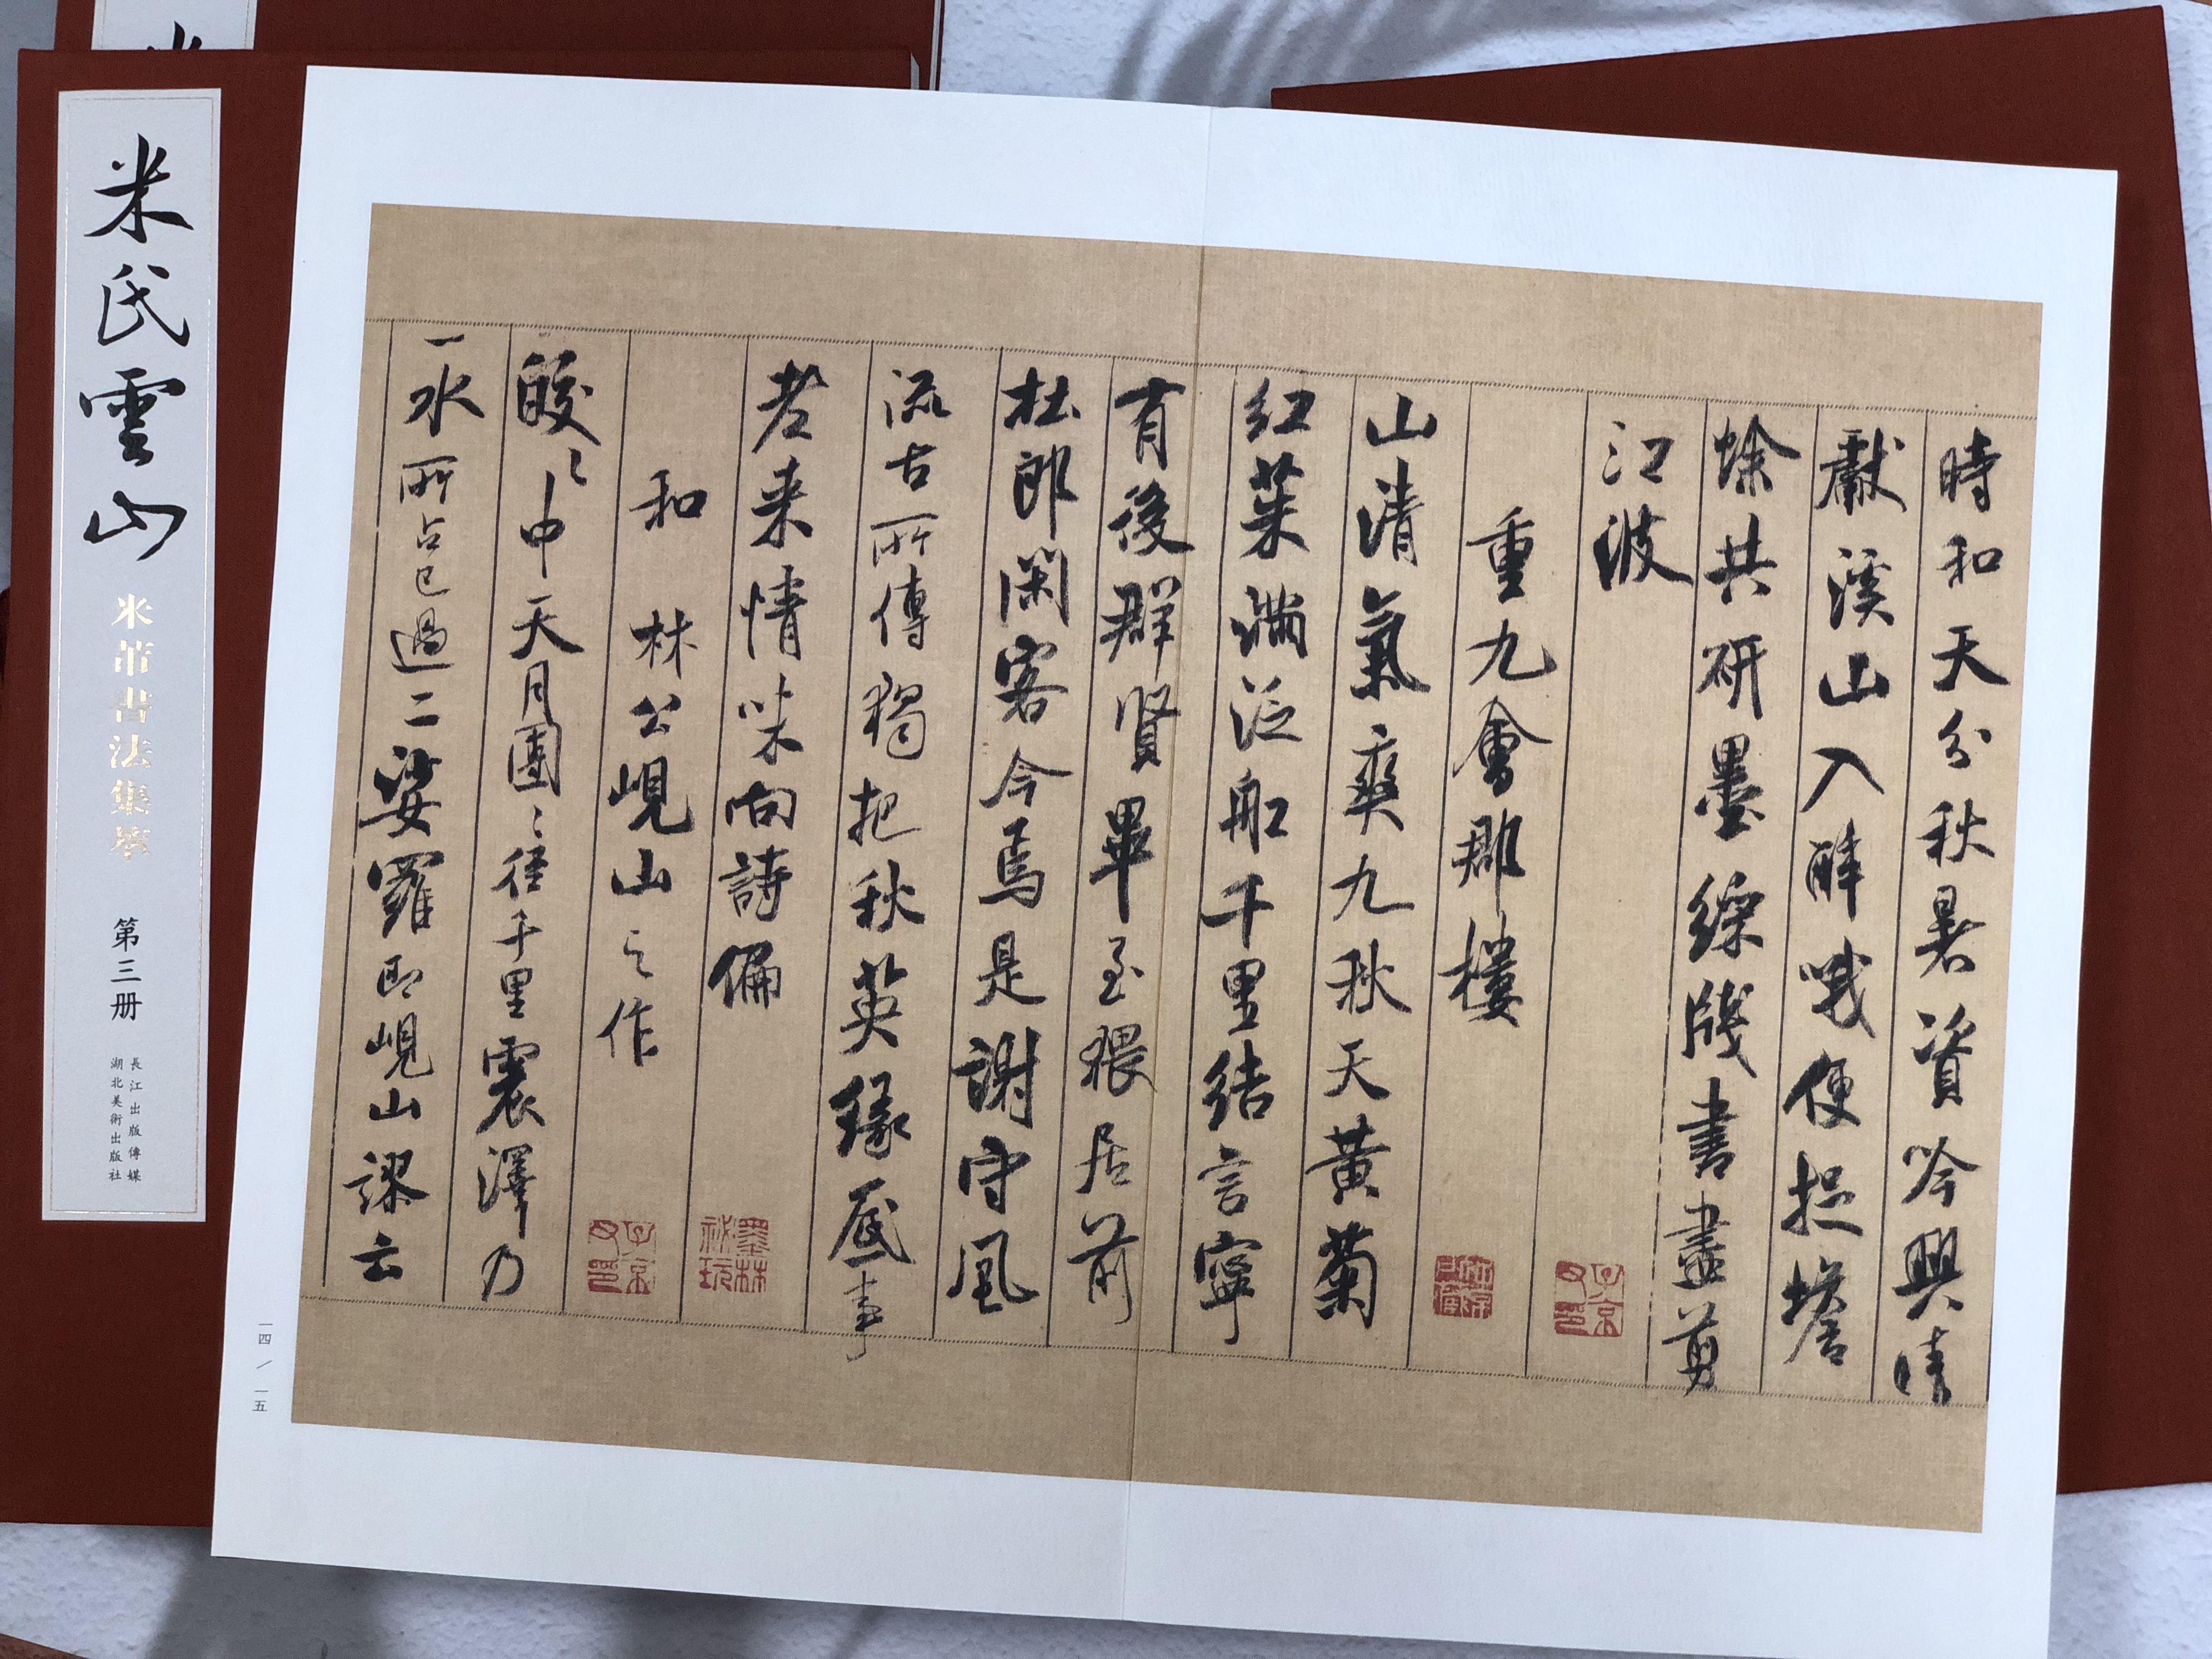 時和天分秋暑資吟興清
獻溪山入醉哦便捉蟾
蜍共研墨綵牋書盡剪
江波
重九會郡樓
山清氣爽九秋天黃菊
紅茱滿泛舡千里結言寧
有後群賢畢至猥居前
杜郎閑客今焉是謝守風
流古所傳獨把秋英緣底事
老来情味向詩偏
和林公峴山之作
皎〻中天月團〻徑千里震澤乃
一水所占已過二娑羅即峴山謬云
子京父印
墨林祕玩
子京父印
一四／一五
米氏雲山
米芾書法集萃
第三册
長江出版傳媒
湖北美術出版社
米